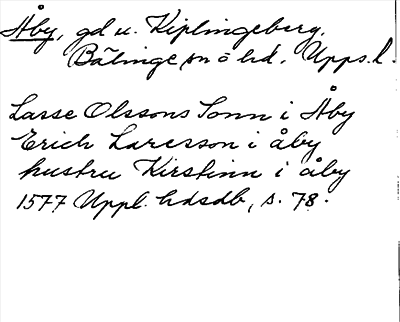 Åby, gd u. Kiplingeberg,
Bälinge sn o hd, Upps. l.
Lasse Olssons Sonn i Åby
Erich Larsson i åby
hustru Kirstinn i åby
1577 Uppl. hdsdb, s. 78.